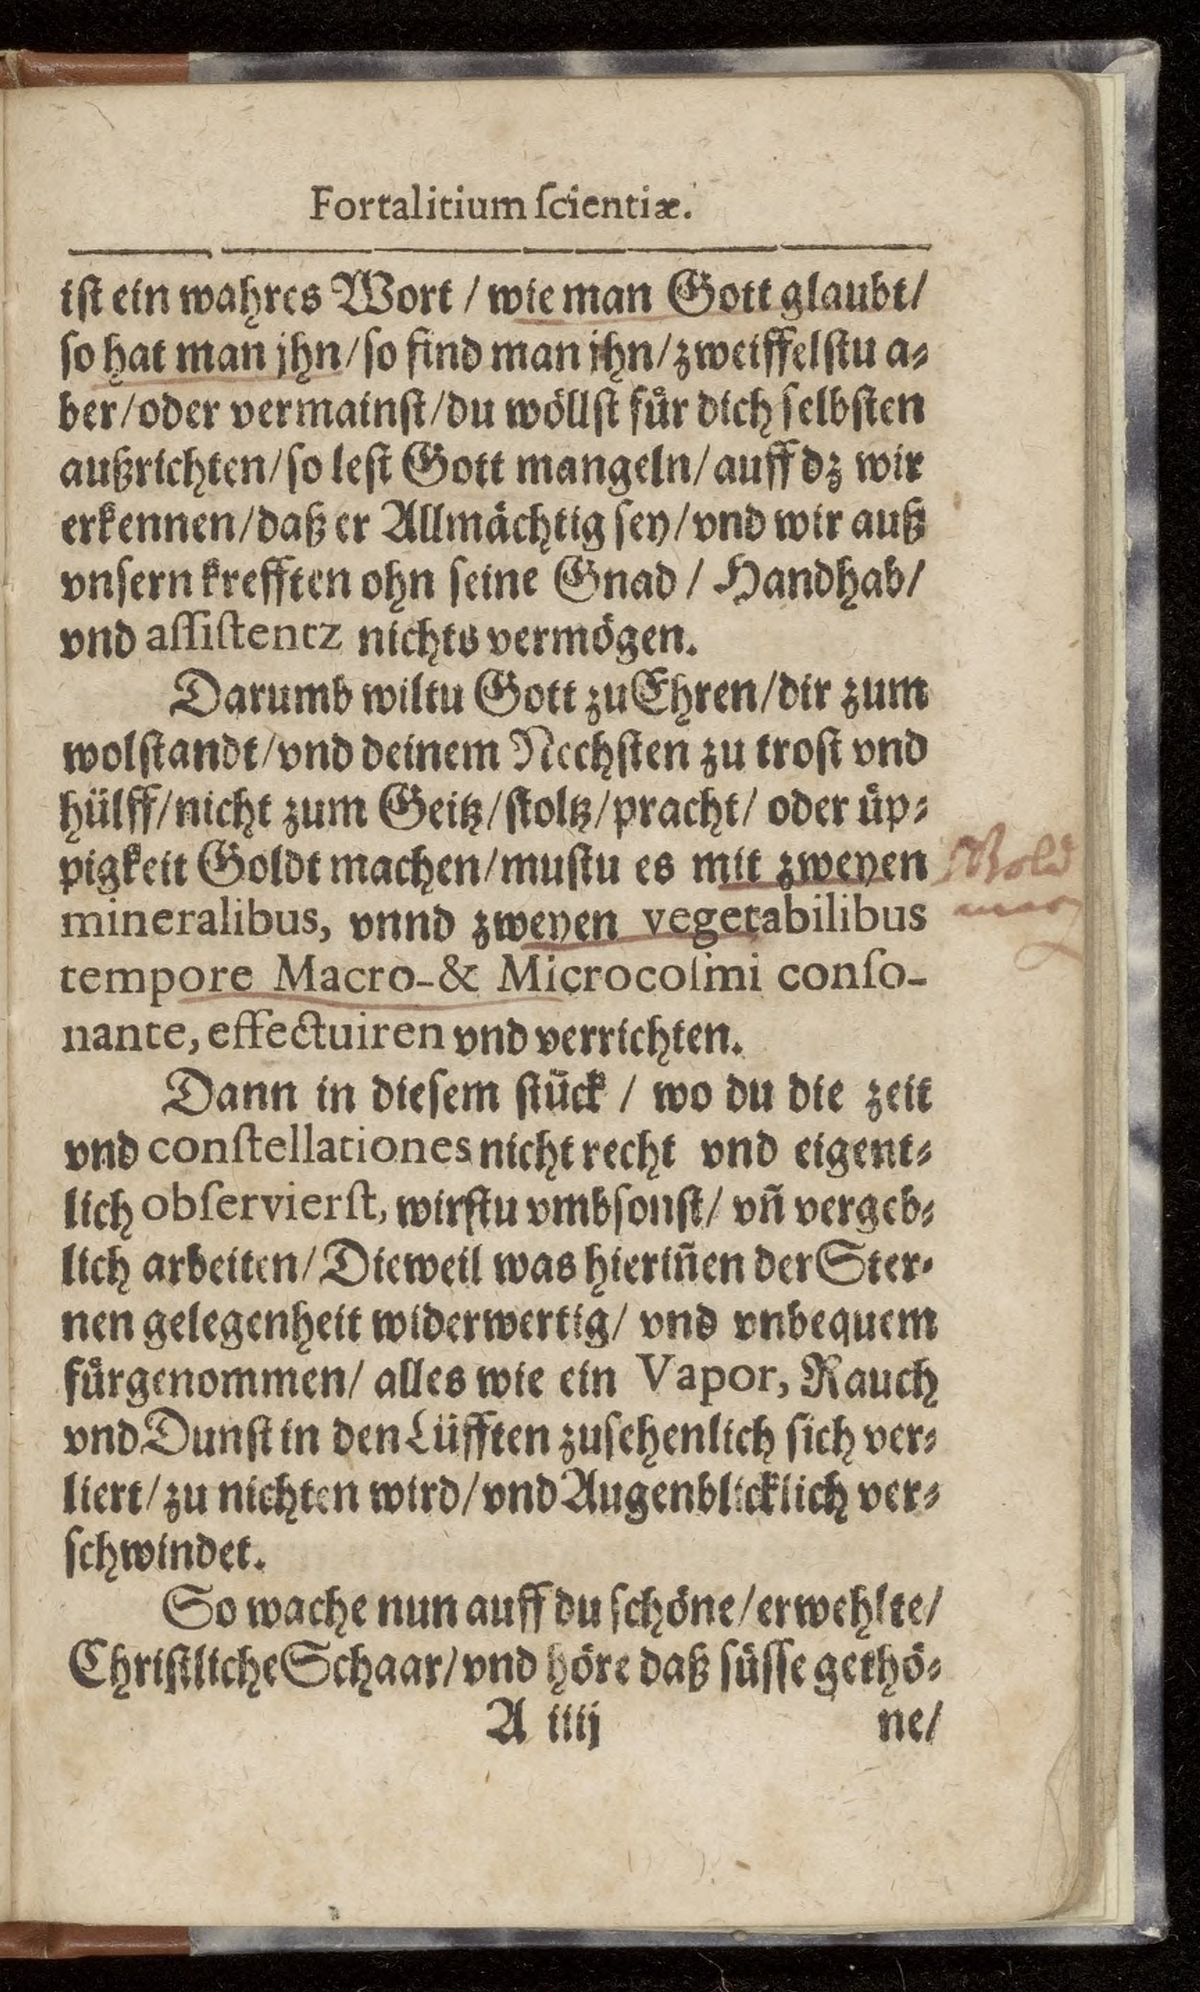 Fortalitium ſcientiæ.
iſt ein wahres Wort / wie man Gott glaubt/
ſo hat man jhn/ſo find man jhn/zweiffelſtu a⸗
ber/oder vermainſt/du wöllſt fuͤr dich ſelbſten
außrichten/ſo leſt Gott mangeln/auff dz wir
erkennen/daß er Allmächtig ſey/vnd wir auß
vnſern krefften ohn ſeine Gnad / Handhab/
vnd aſſiſtentz nichts vermögen.
Darumb wiltu Gott zu Ehren/dir zum
wolſtandt/vnd deinem Nechſten zu troſt vnd
hülff/nicht zum Geitz/ſtoltz/pracht/ oder üp⸗
pigkeit Goldt machen/muſtu es mit zweyen
mineralibus, vnnd zweyen vegetabilibus
tempore Macro-& Microcoſmi conſo-
nante, effectuiren vnd verrichten.
Dann in dieſem ſtück / wo du die zeit
vnd conſtellationes nicht recht vnd eigent⸗
lich obſervierſt, wirſtu vmbſonſt/ vñ vergeb⸗
lich arbeiten/Dieweil was hieriñen der Ster⸗
nen gelegenheit widerwertig/ vnd vnbequem
fuͤrgenommen/ alles wie ein Vapor, Rauch
vnd Dunſt in den Lüfften zuſehenlich ſich ver⸗
liert/zu nichten wird/vnd Augenblicklich ver⸗
ſchwindet.
So wache nun auff du ſchöne/erwehlte/
Chriſtliche Schaar/vnd höre daß ſüſſe gethö⸗
A iiij ne/